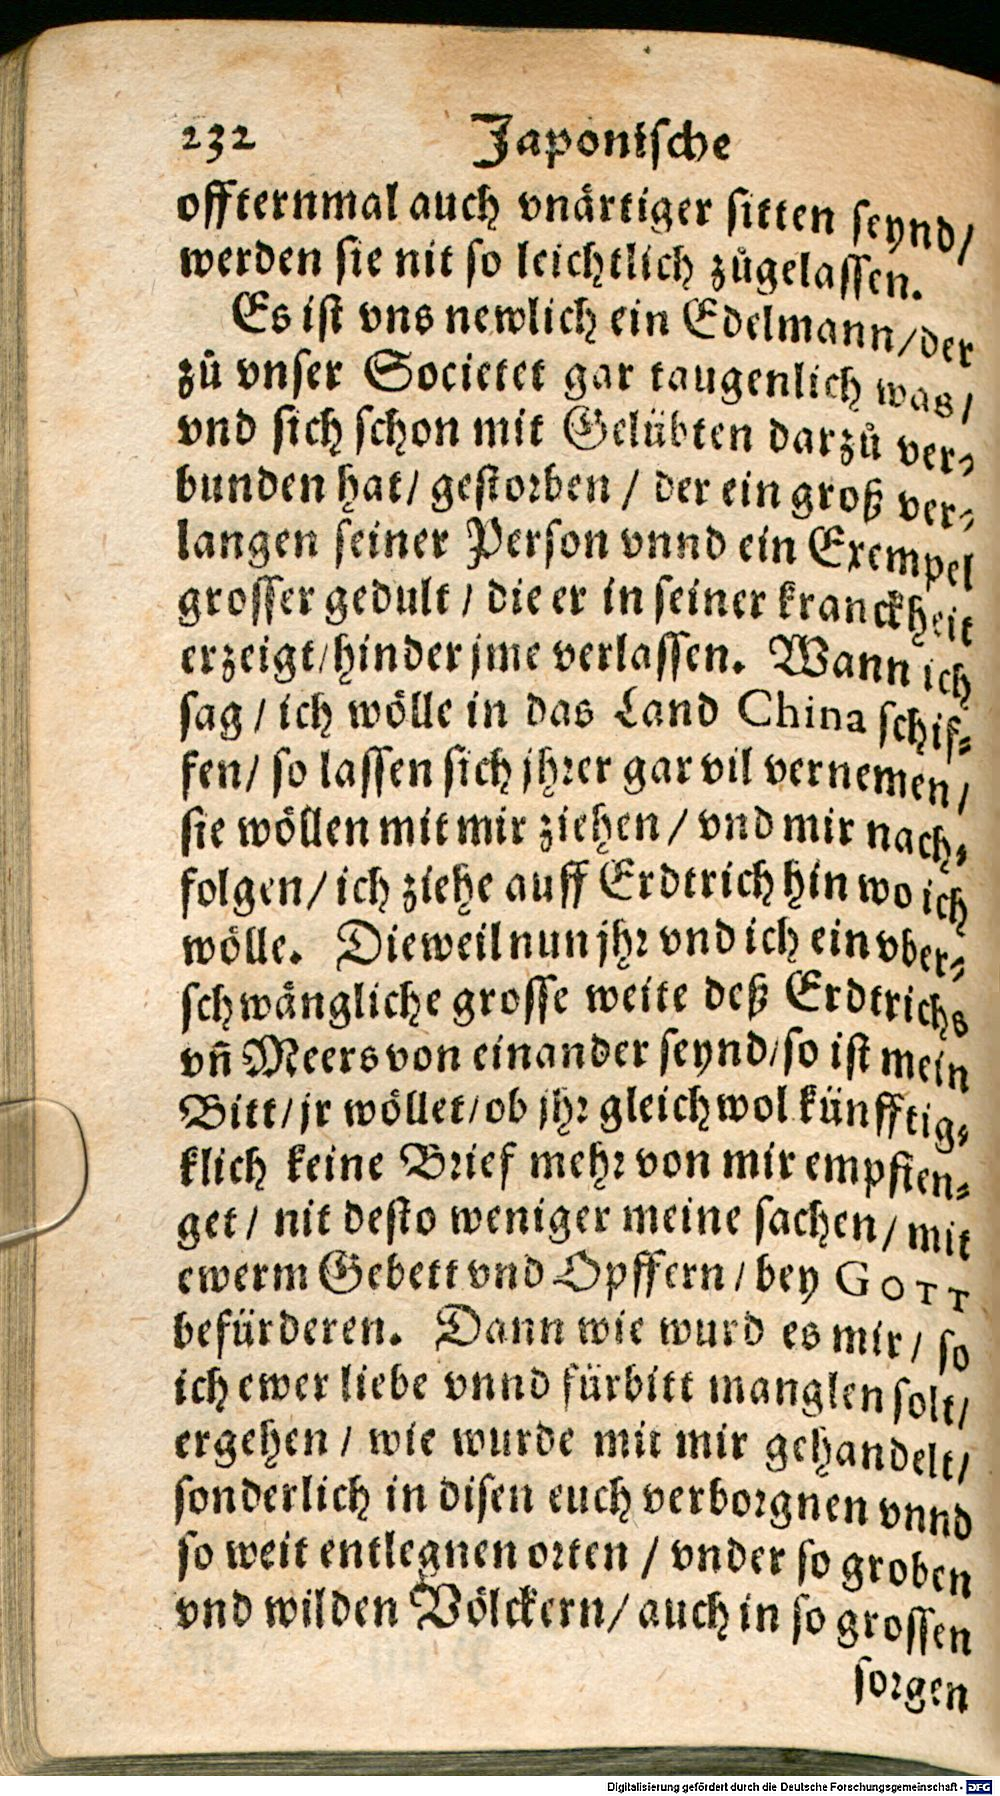 232 Japonische
offternmal auch vnärtiger sitten seynd/
werden sie nit so leichtlich zůgelassen.
Es ist vns newlich ein Edelmann/der
zů vnser Societet gar taugenlich was/
vnd sich schon mit Gelübten darzů ver-
bunden hat/ gestorben / der ein groß ver-
langen seiner Person vnnd ein Exempel
grosser gedult / die er in seiner kranckheit
erzeigt/hinder jme verlassen. Wann ich
sag / ich wölle in das Land China schif-
fen/ so lassen sich jhrer gar vil vernemen/
sie wöllen mit mir ziehen / vnd mir nach-
folgen/ ich ziehe auff Erdtrich hin wo ich
wölle. Dieweil nun jhr vnd ich ein vber-
schwängliche grosse weite deß Erdtrichs
vñ Meers von einander seynd/so ist mein
Bitt/jr wöllet/ob jhr gleichwol künfftig-
klich keine Brief mehr von mir empfien-
get/ nit desto weniger meine sachen/ mit
ewerm Gebett vnd Opffern / bey GOTT
befürderen. Dann wie wurd es mir/ so
ich ewer liebe vnnd fürbitt manglen solt/
ergehen / wie wurde mit mir gehandelt/
sonderlich in disen euch verborgnen vnnd
so weit entlegnen orten / vnder so groben
vnd wilden Völckern/ auch in so grossen
sorgen
Digitalisierung gefördert durch die Deutsche Forschungsgemeinschaft - DFG